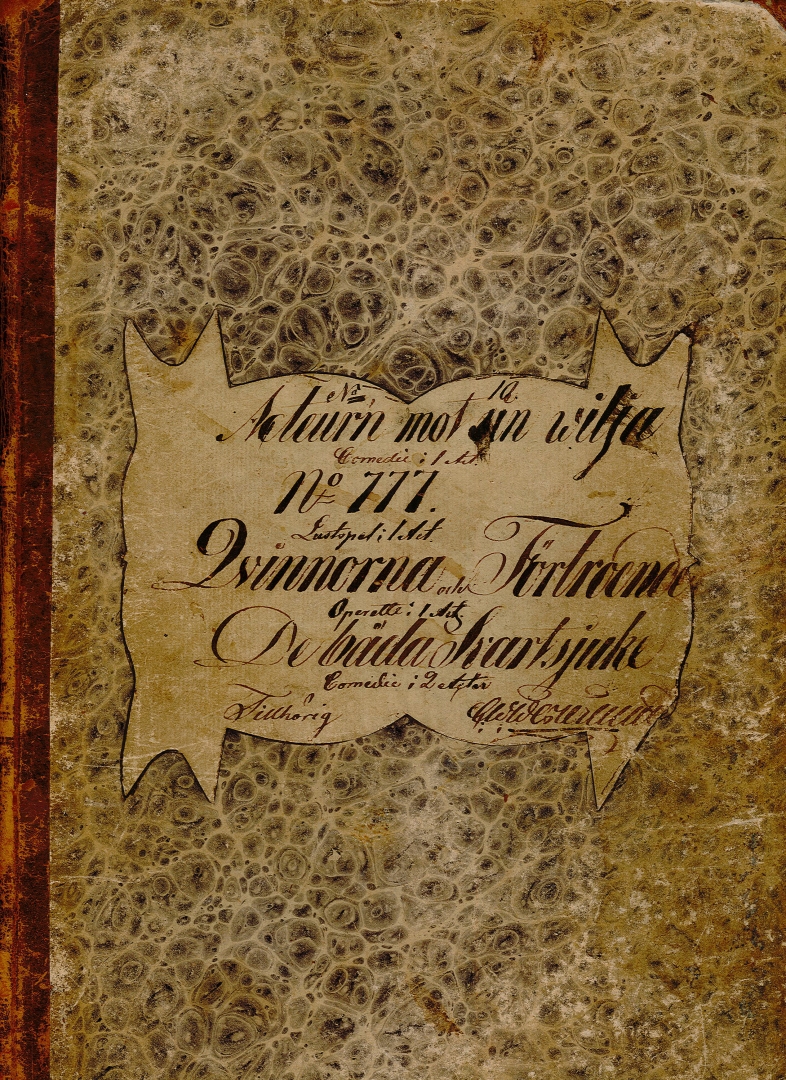 No 10.
Acteurn mot sin wilja
Comedie i 1 Act.
No 777.
Lustspel i 1 Act.
Qvinnorna och Förtroende
Operette i 1 Act
De båda Svartsjuke
Comedie i 2 Acter
Tillhörig